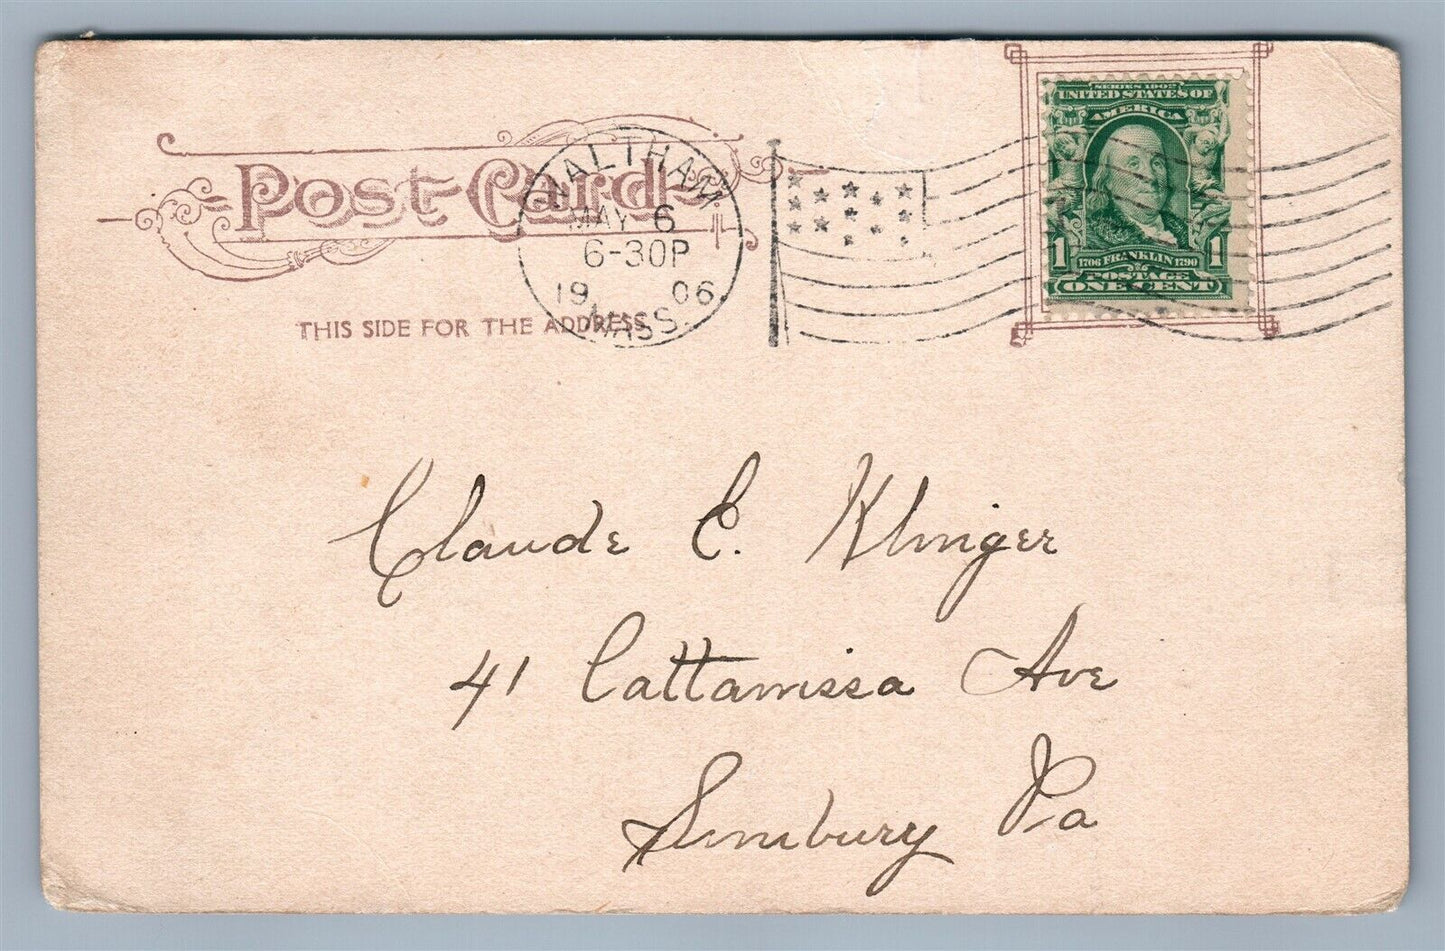 Post Card
THIS SIDE FOR THE ADDRESS
WALTHAM
MAY 6
6-30P
19 06
MASS.
SERIES 1902
UNITED STATES OF
AMERICA
1 1706 FRANKLIN 1790 1
POSTAGE
ONE CENT
Claude E. Klinger
41 Cattawissa Ave
Sunbury Pa